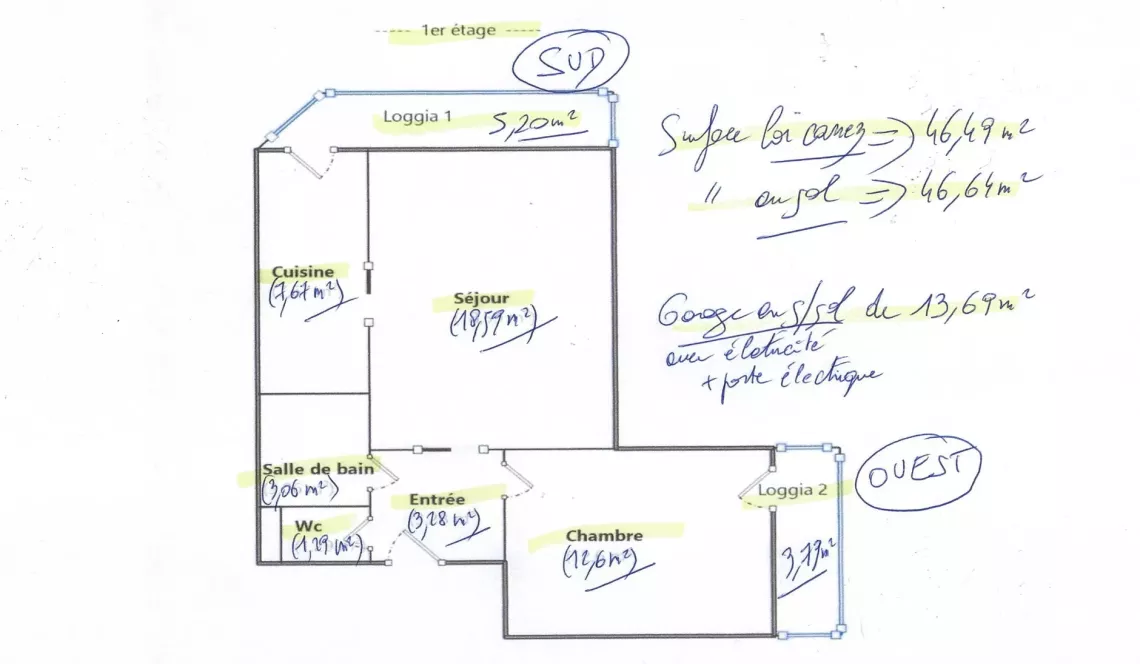 1er étage
SUD
Loggia 1
5,20m²
Surface loi carrez => 46,49m²
" au sol => 46,64m²
Cuisine
(7,67m²)
Séjour
(18,59m²)
Garage en s/sol de 13,69m²
avec électricité
+ porte électrique
Salle de bain
(3,06m²)
Entrée
(3,28m²)
Wc
(1,29m²)
Chambre
(12,6m²)
Loggia 2
3,73m²
OUEST